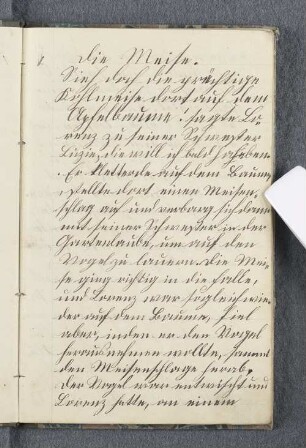 Die Meise.
Sieh doch die prächtige
Kohlmeise dort auf dem
Apfelbaume. sagte Lo-
renz zu seiner Schwester
Lizie, die will ich bald haben.
Er kletterte auf dem Baum,
stellte dort einen Meisen-
schlag auf und verbarg sich dann
mit seiner Schwester in der
Gartenlaube, um auf den
Vogel zu lauern. Die Mei-
se ging richtig in die Falle,
und Lorenz war sogleich wie-
der auf dem Baume, fiel
aber, indem er den Vogel
herausnehmen wollte, sammt
dem Meisenschlage herab,
der Vogel war entwischt und
Lorenz hatte, an einem